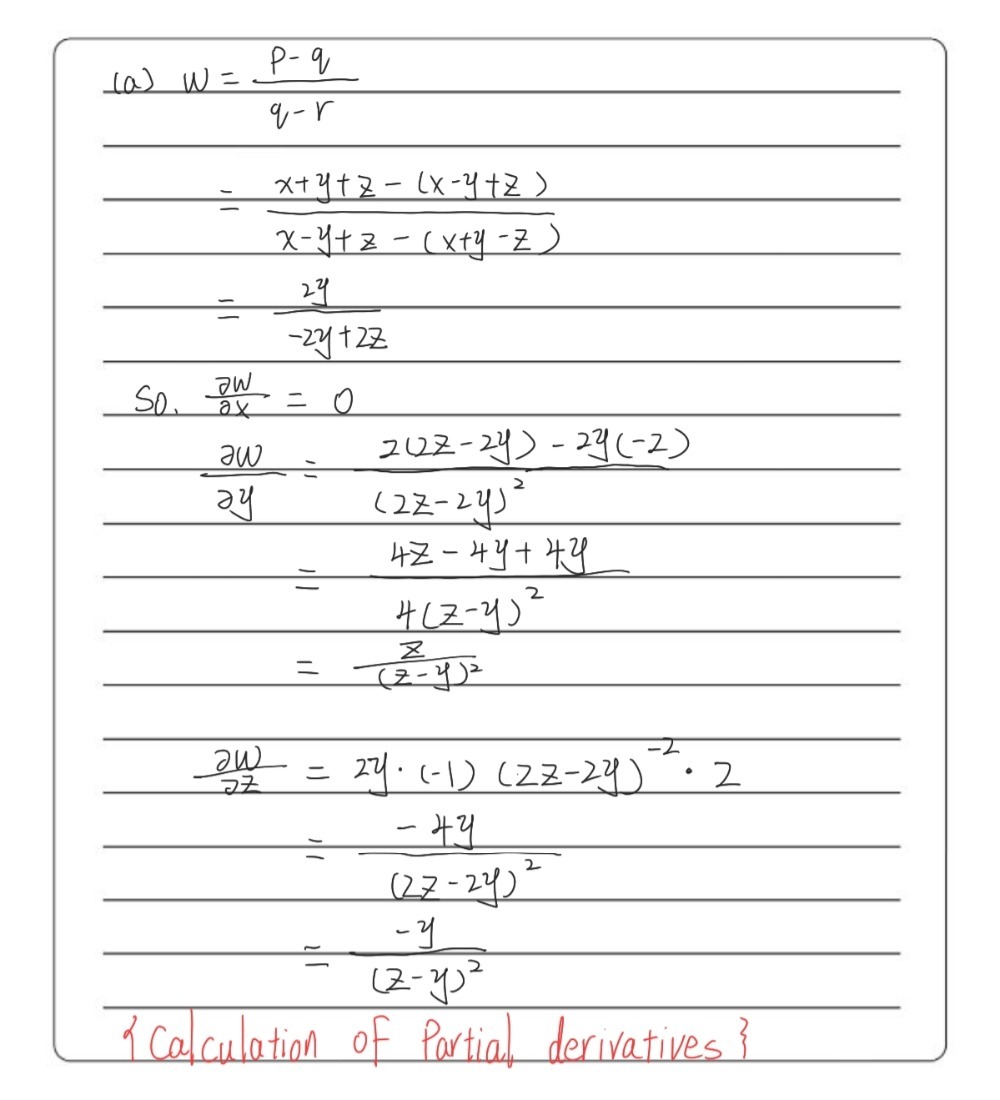 (a) W = (p-q)/(q-r)
= (x+y+z-(x-y+z))/(x-y+z-(x+y-z))
= 2y/(-2y+2z)
So. ∂W/∂x = 0
∂W/∂y = (2(2z-2y)-2y(-2))/(2z-2y)²
= (4z-4y+4y)/(4(z-y)²)
= z/(z-y)²
∂W/∂z = 2y·(-1)(2z-2y)⁻²·2
= -4y/(2z-2y)²
= -y/(z-y)²
{Calculation of Partial derivatives}